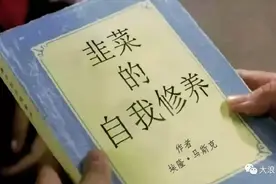 韭菜
的
自我修养
作者
埃隆·马斯克
大浪